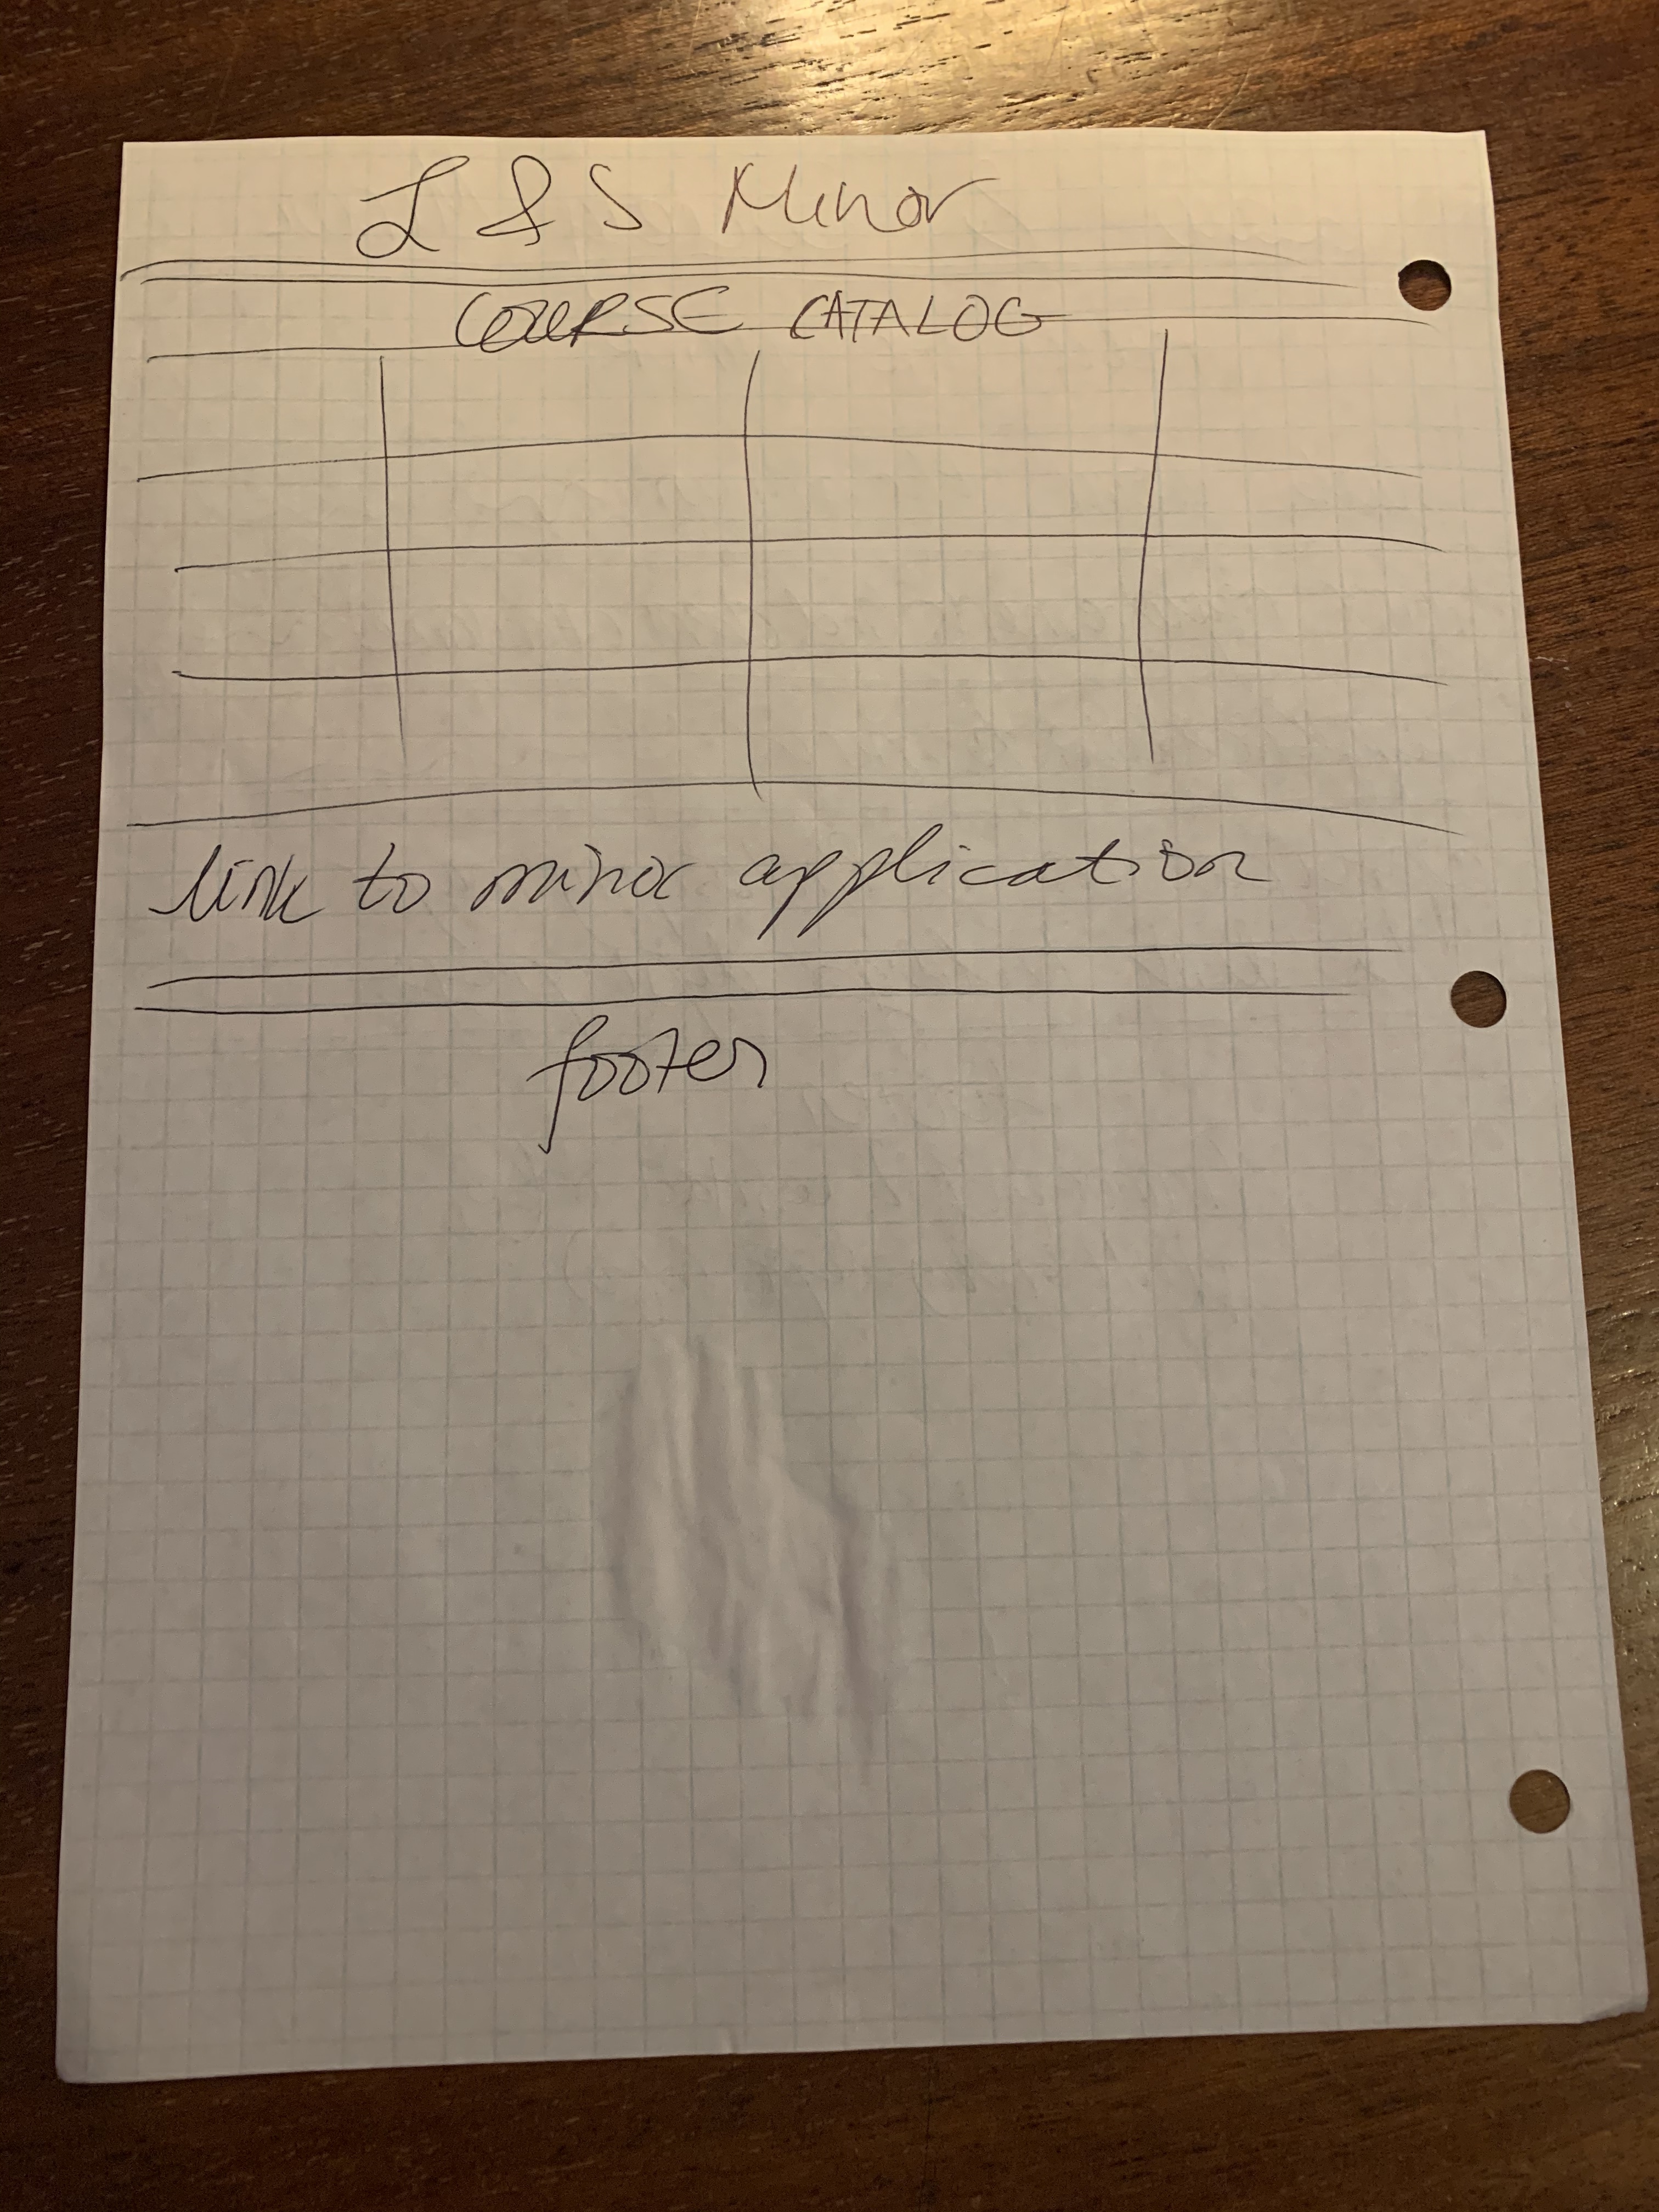 L & S Minor
COURSE CATALOG
link to minor application
footer